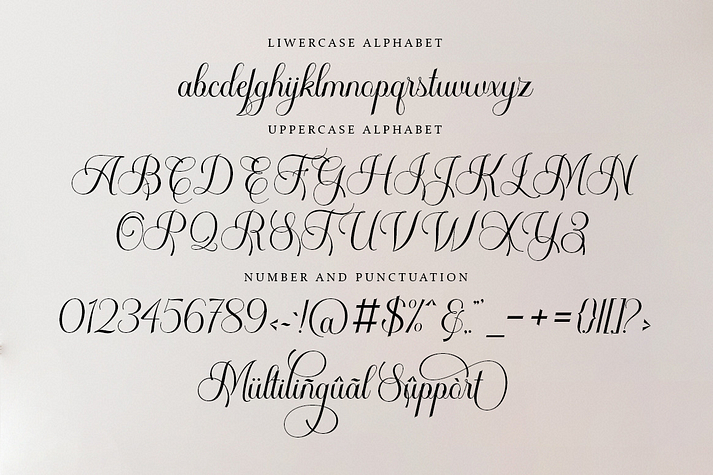 LIWERCASE ALPHABET
abcdefghijklmnopqrstuvwxyz
UPPERCASE ALPHABET
ABCDEFGHIJKLMN
OPQRSTUVWXYZ
NUMBER AND PUNCTUATION
0123456789<~`!@#$%^&.,"'_-+={}|[]?>
Mültilingûãl Sûppòrt